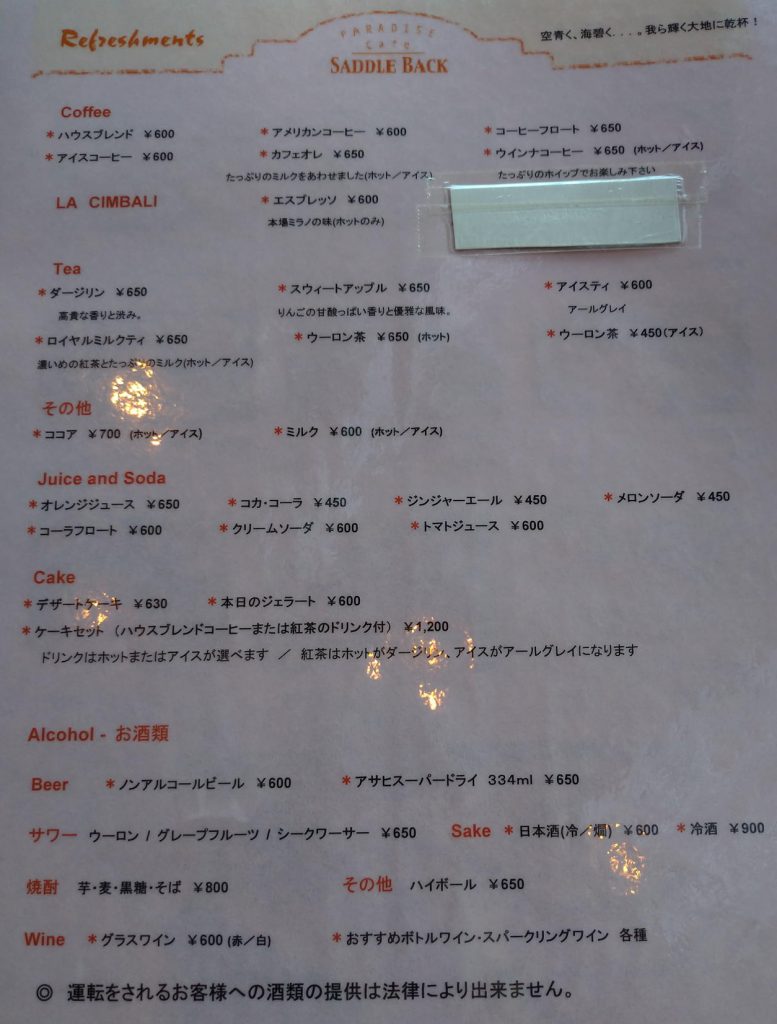 Refreshments
PARADISE
Cafe
SADDLE BACK
空青く、海碧く....。我ら輝く大地に乾杯！
Coffee
*ハウスブレンド ￥600 *アメリカンコーヒー ￥600 *コーヒーフロート ￥650
*アイスコーヒー ￥600 *カフェオレ ￥650 *ウインナコーヒー ￥650 (ホット／アイス)
たっぷりのミルクをあわせました(ホット／アイス) たっぷりのホイップでお楽しみ下さい
LA CIMBALI *エスプレッソ ￥600
本場ミラノの味(ホットのみ)
Tea
*ダージリン ￥650 *スウィートアップル ￥650 *アイスティ ￥600
高貴な香りと渋み。 りんごの甘酸っぱい香りと優雅な風味。 アールグレイ
*ロイヤルミルクティ ￥650 *ウーロン茶 ￥650 (ホット) *ウーロン茶 ￥450(アイス)
濃いめの紅茶とたっぷりのミルク(ホット／アイス)
その他
*ココア ￥700 (ホット／アイス) *ミルク ￥600 (ホット／アイス)
Juice and Soda
*オレンジジュース ￥650 *コカ・コーラ ￥450 *ジンジャーエール ￥450 *メロンソーダ ￥450
*コーラフロート ￥600 *クリームソーダ ￥600 *トマトジュース ￥600
Cake
*デザートケーキ ￥630 *本日のジェラート ￥600
*ケーキセット （ハウスブレンドコーヒーまたは紅茶のドリンク付） ￥1,200
ドリンクはホットまたはアイスが選べます ／ 紅茶はホットがダージリン、アイスがアールグレイになります
Alcohol - お酒類
Beer *ノンアルコールビール ￥600 *アサヒスーパードライ 334ml ￥650
サワー ウーロン / グレープフルーツ / シークワーサー ￥650 Sake *日本酒(冷／燗) ￥600 *冷酒 ￥900
焼酎 芋・麦・黒糖・そば ￥800 その他 ハイボール ￥650
Wine *グラスワイン ￥600 (赤／白) *おすすめボトルワイン・スパークリングワイン 各種
◎ 運転をされるお客様への酒類の提供は法律により出来ません。